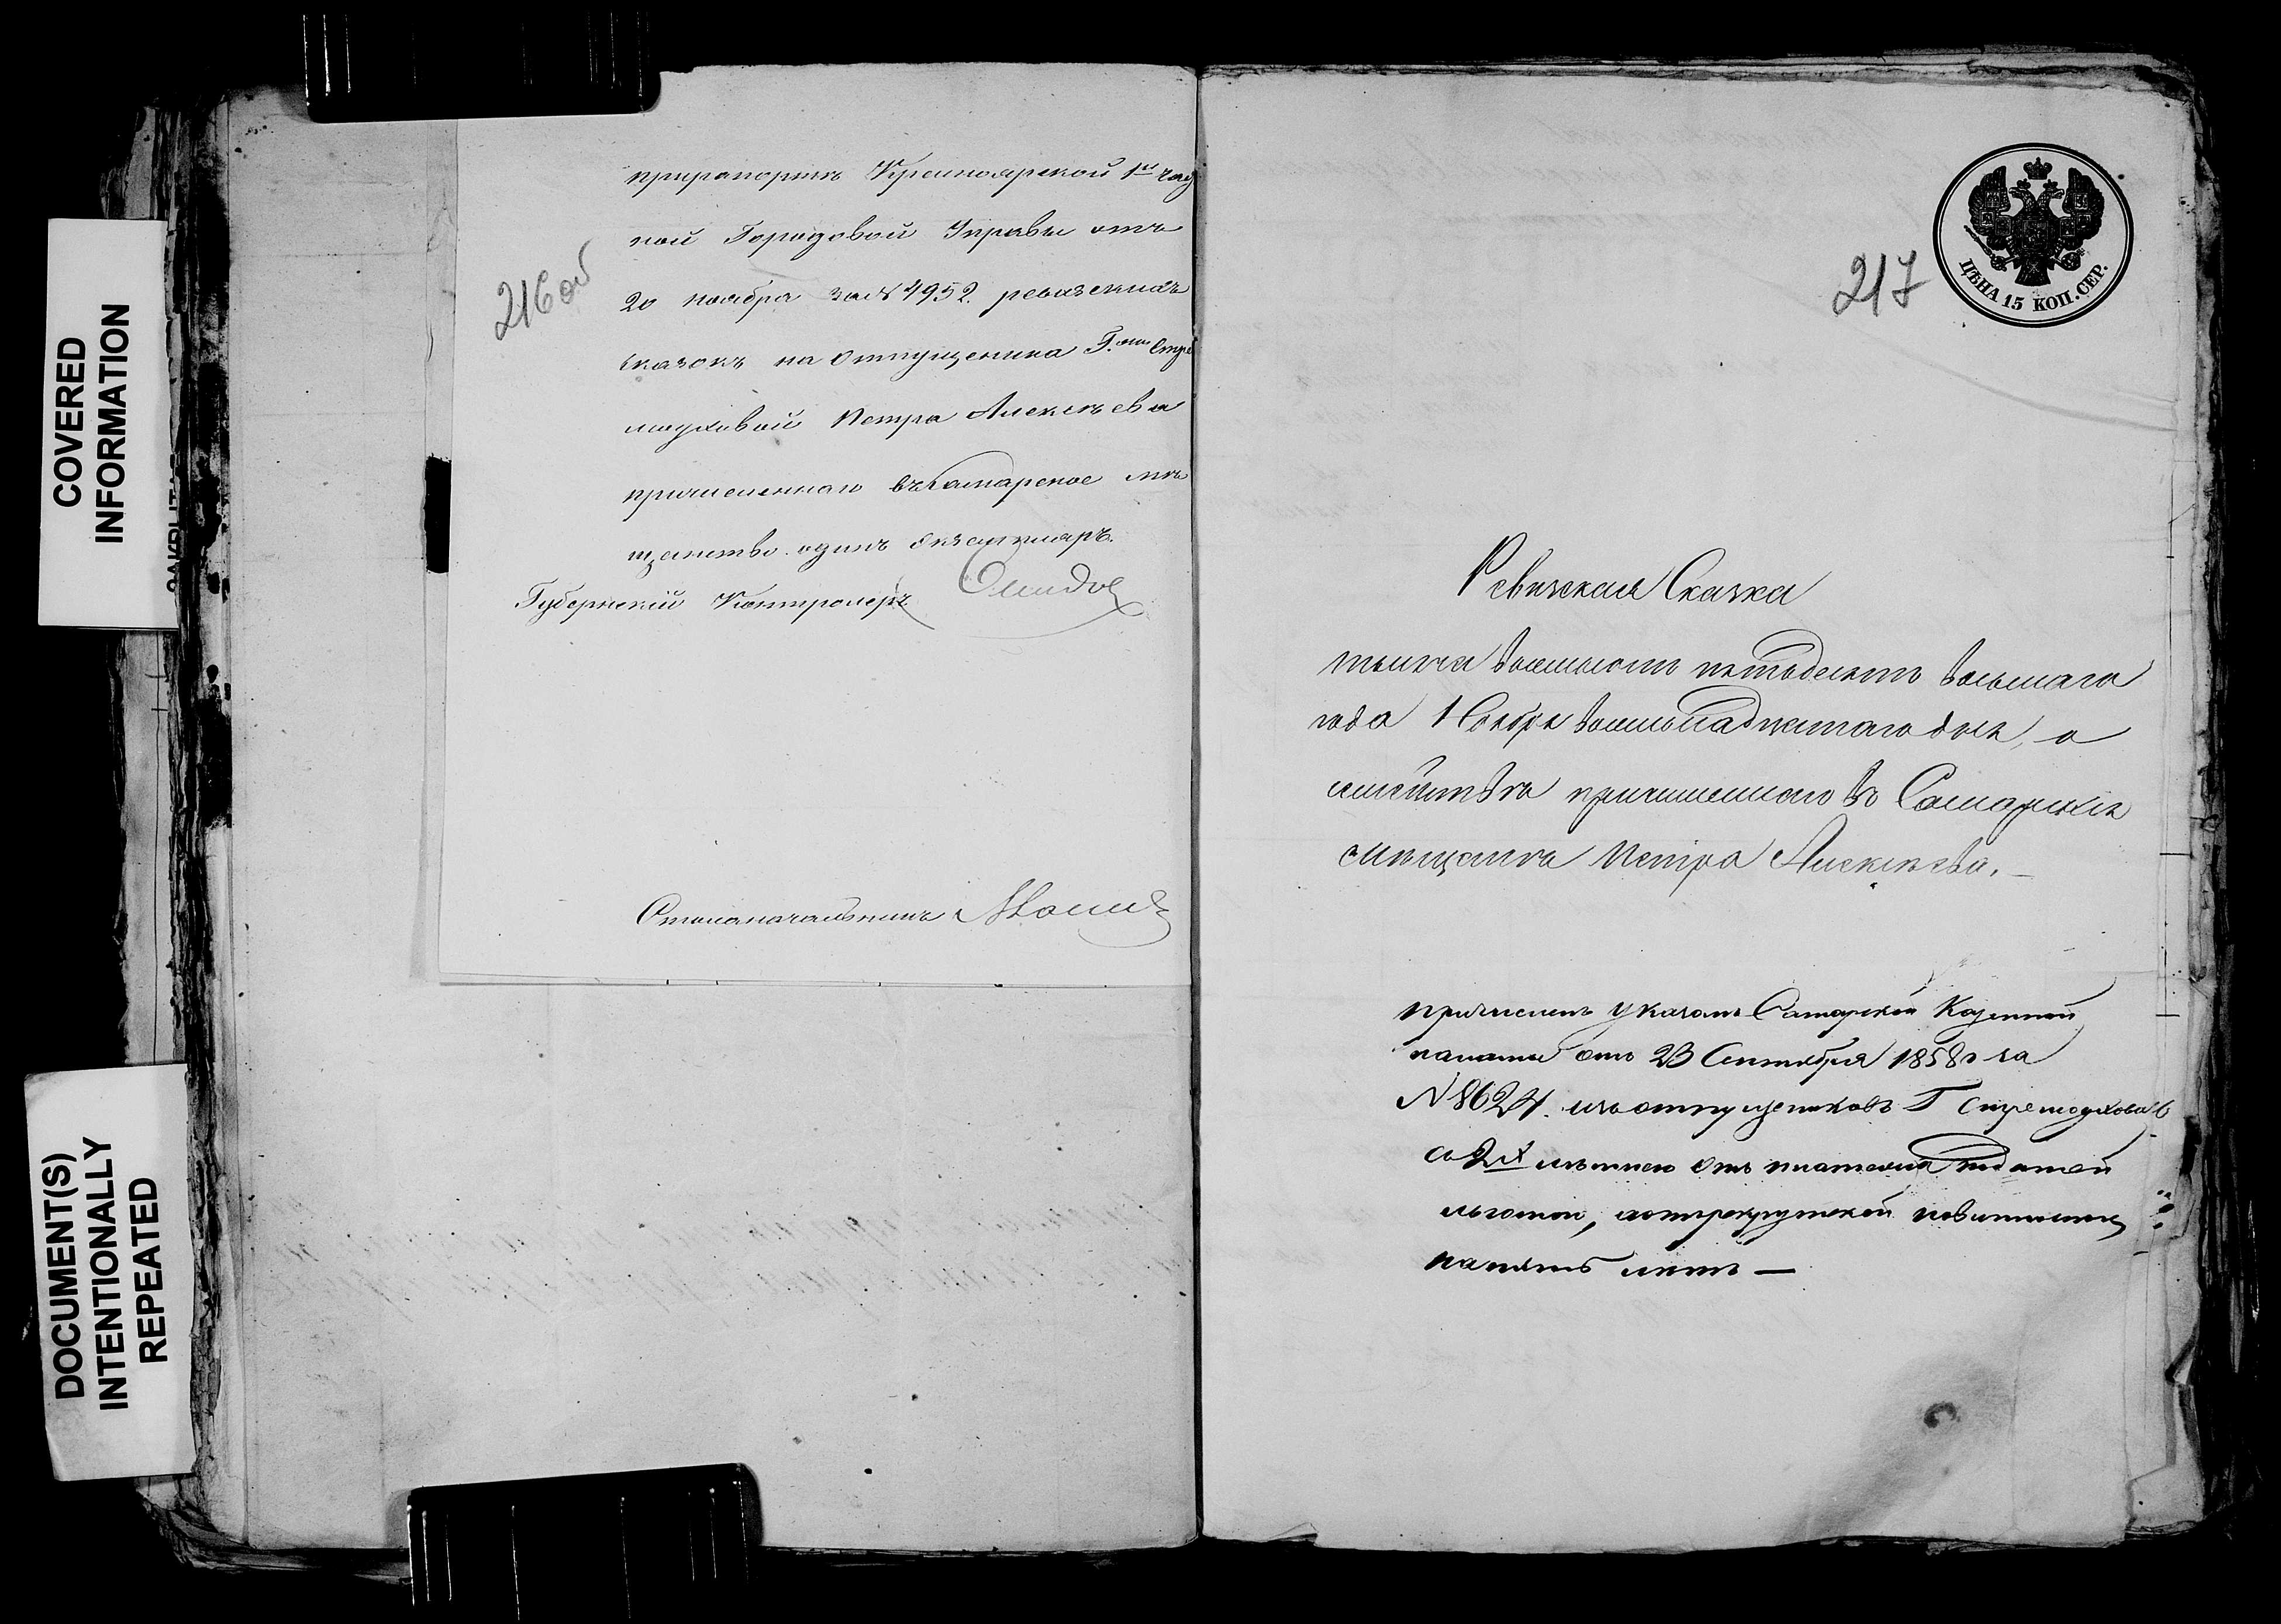 COVERED
INFORMATION
DOCUMENT(S)
INTENTIONALLY
REPEATED
216 об
при рапортѣ Красноярской 1й
ной Городовой Управы отъ
20 ноября за № 4952. ревизскихъ
сказокъ на отпущеника Г.жи Стре
моуховой Петра Алексѣева
причисленнаго въ Самарское мѣ
щанство одинъ экземпляръ.
Губернскій Контролеръ
Столоначальникъ
217
ЦѢНА 15 КОП. СЕР.
Ревизская Сказка
тысяча восемьсотъ пятьдесятъ восьмаго
года Ноября восемьнадцатаго дня, о
причисленнаго въ Самарскіе
мѣщане Петра Алексѣева.
причисленъ указомъ Самарской Казенной
палаты отъ 23 Сентября 1858 г за
№ 8624. изъ отпущениковъ Г Стремоуховой
съ 2х лѣтнею отъ платежа податей
льготой, а отъ рекрутской повинности
на пять лѣтъ —